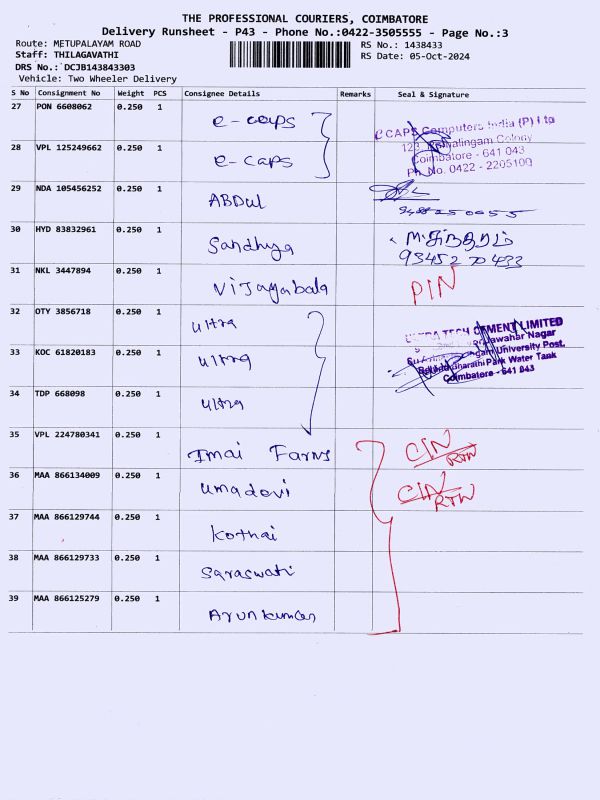 THE PROFESSIONAL COURIERS, COIMBATORE
Delivery Runsheet - P43 - Phone No.:0422-3505555 - Page No.:3
Route: METUPALAYAM ROAD
RS No.: 1438433
Staff: THILAGAVATHI
RS Date: 05-Oct-2024
DRS No.: DCJB143843303
Vehicle: Two Wheeler Delivery
S No Consignment No Weight PCS Consignee Details Remarks Seal & Signature
27 PON 6608062 0.250 1 e-caps
28 VPL 125249662 0.250 1 e-caps
e CAPS Computers India (P) Ltd
Coimbatore - 641 043
Ph. No. 0422 - 2205100
29 NDA 105456252 0.250 1 ABDul
30 HYD 83832961 0.250 1 Sandhya
93452 70433
31 NKL 3447894 0.250 1 Vijayabala PIN
32 OTY 3856718 0.250 1 ultra
33 KOC 61820183 0.250 1 ultra
ULTRA TECH CEMENT LIMITED
Jawahar Nagar
University Post,
Park Water Tank
Coimbatore - 641 043
34 TDP 668098 0.250 1 ultra
35 VPL 224780341 0.250 1 Imai Farms C/N RTN
36 MAA 866134009 0.250 1 umadevi C/N RTN
37 MAA 866129744 0.250 1 Kothai
38 MAA 866129733 0.250 1 Saraswati
39 MAA 866125279 0.250 1 Arunkumar